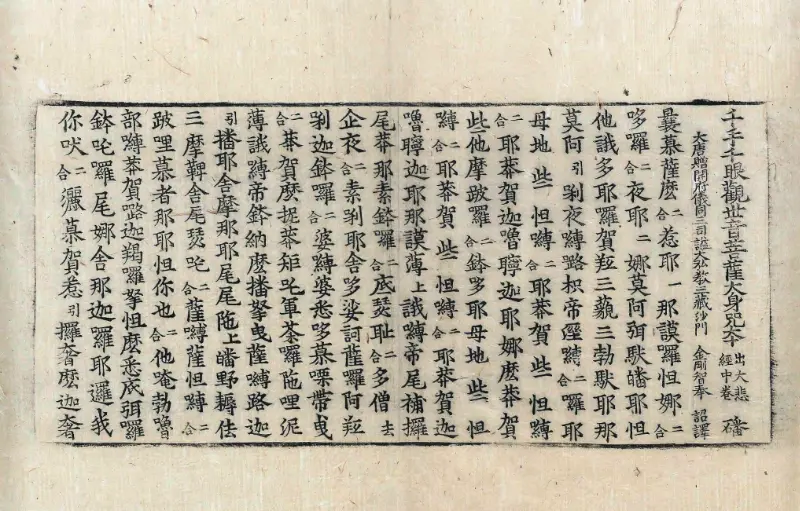 千手千眼觀世音菩薩大身咒本 出大悲經中卷 磻
大唐贈開府儀同三司諡大弘教三藏沙門 金剛智奉 詔譯
曩慕薩麼二合惹耶一那謨羅怛娜二合
哆羅二合夜耶二娜莫阿弭馱皤耶怛
他誐多耶羅賀羝三藐三勃馱耶那
莫阿引剌夜嚩路枳帝溼嚩二合羅耶
母地些二怛嚩二合耶莽賀些二怛嚩
二合耶莽賀迦嚕寧迦耶娜麼莽賀
些他摩跛羅二合鉢多耶母地些二怛
嚩二合耶莽賀些二怛嚩二合耶莽賀迦
嚕寧迦耶那謨薄上誐嚩帝尾補攞
尾莽那素鉢羅二合底瑟耻二合多僧去
企夜二合素剌耶舍哆娑訶薩羅阿羝
剌迦鉢羅二合婆嚩婆悉哆慕㗚帶曳
二合莽賀麼捉莽矩吒軍荼羅陁哩泥
薄誐嚩帝鉢納麼播拏曳薩嚩路迦
引播耶舍摩那耶尾尾陁上皤野耨佉
三摩鞞舍尾瑟吒二合薩嚩薩怛嚩二合
跛哩慕者那耶怛你也二合他唵勃嚕
部嚩莽賀路迦羯羅拏怛麼悉底弭羅
鉢吒羅尾娜舍那迦羅耶邏我
你吠二合灑慕賀惹引攞奢麼迦奢